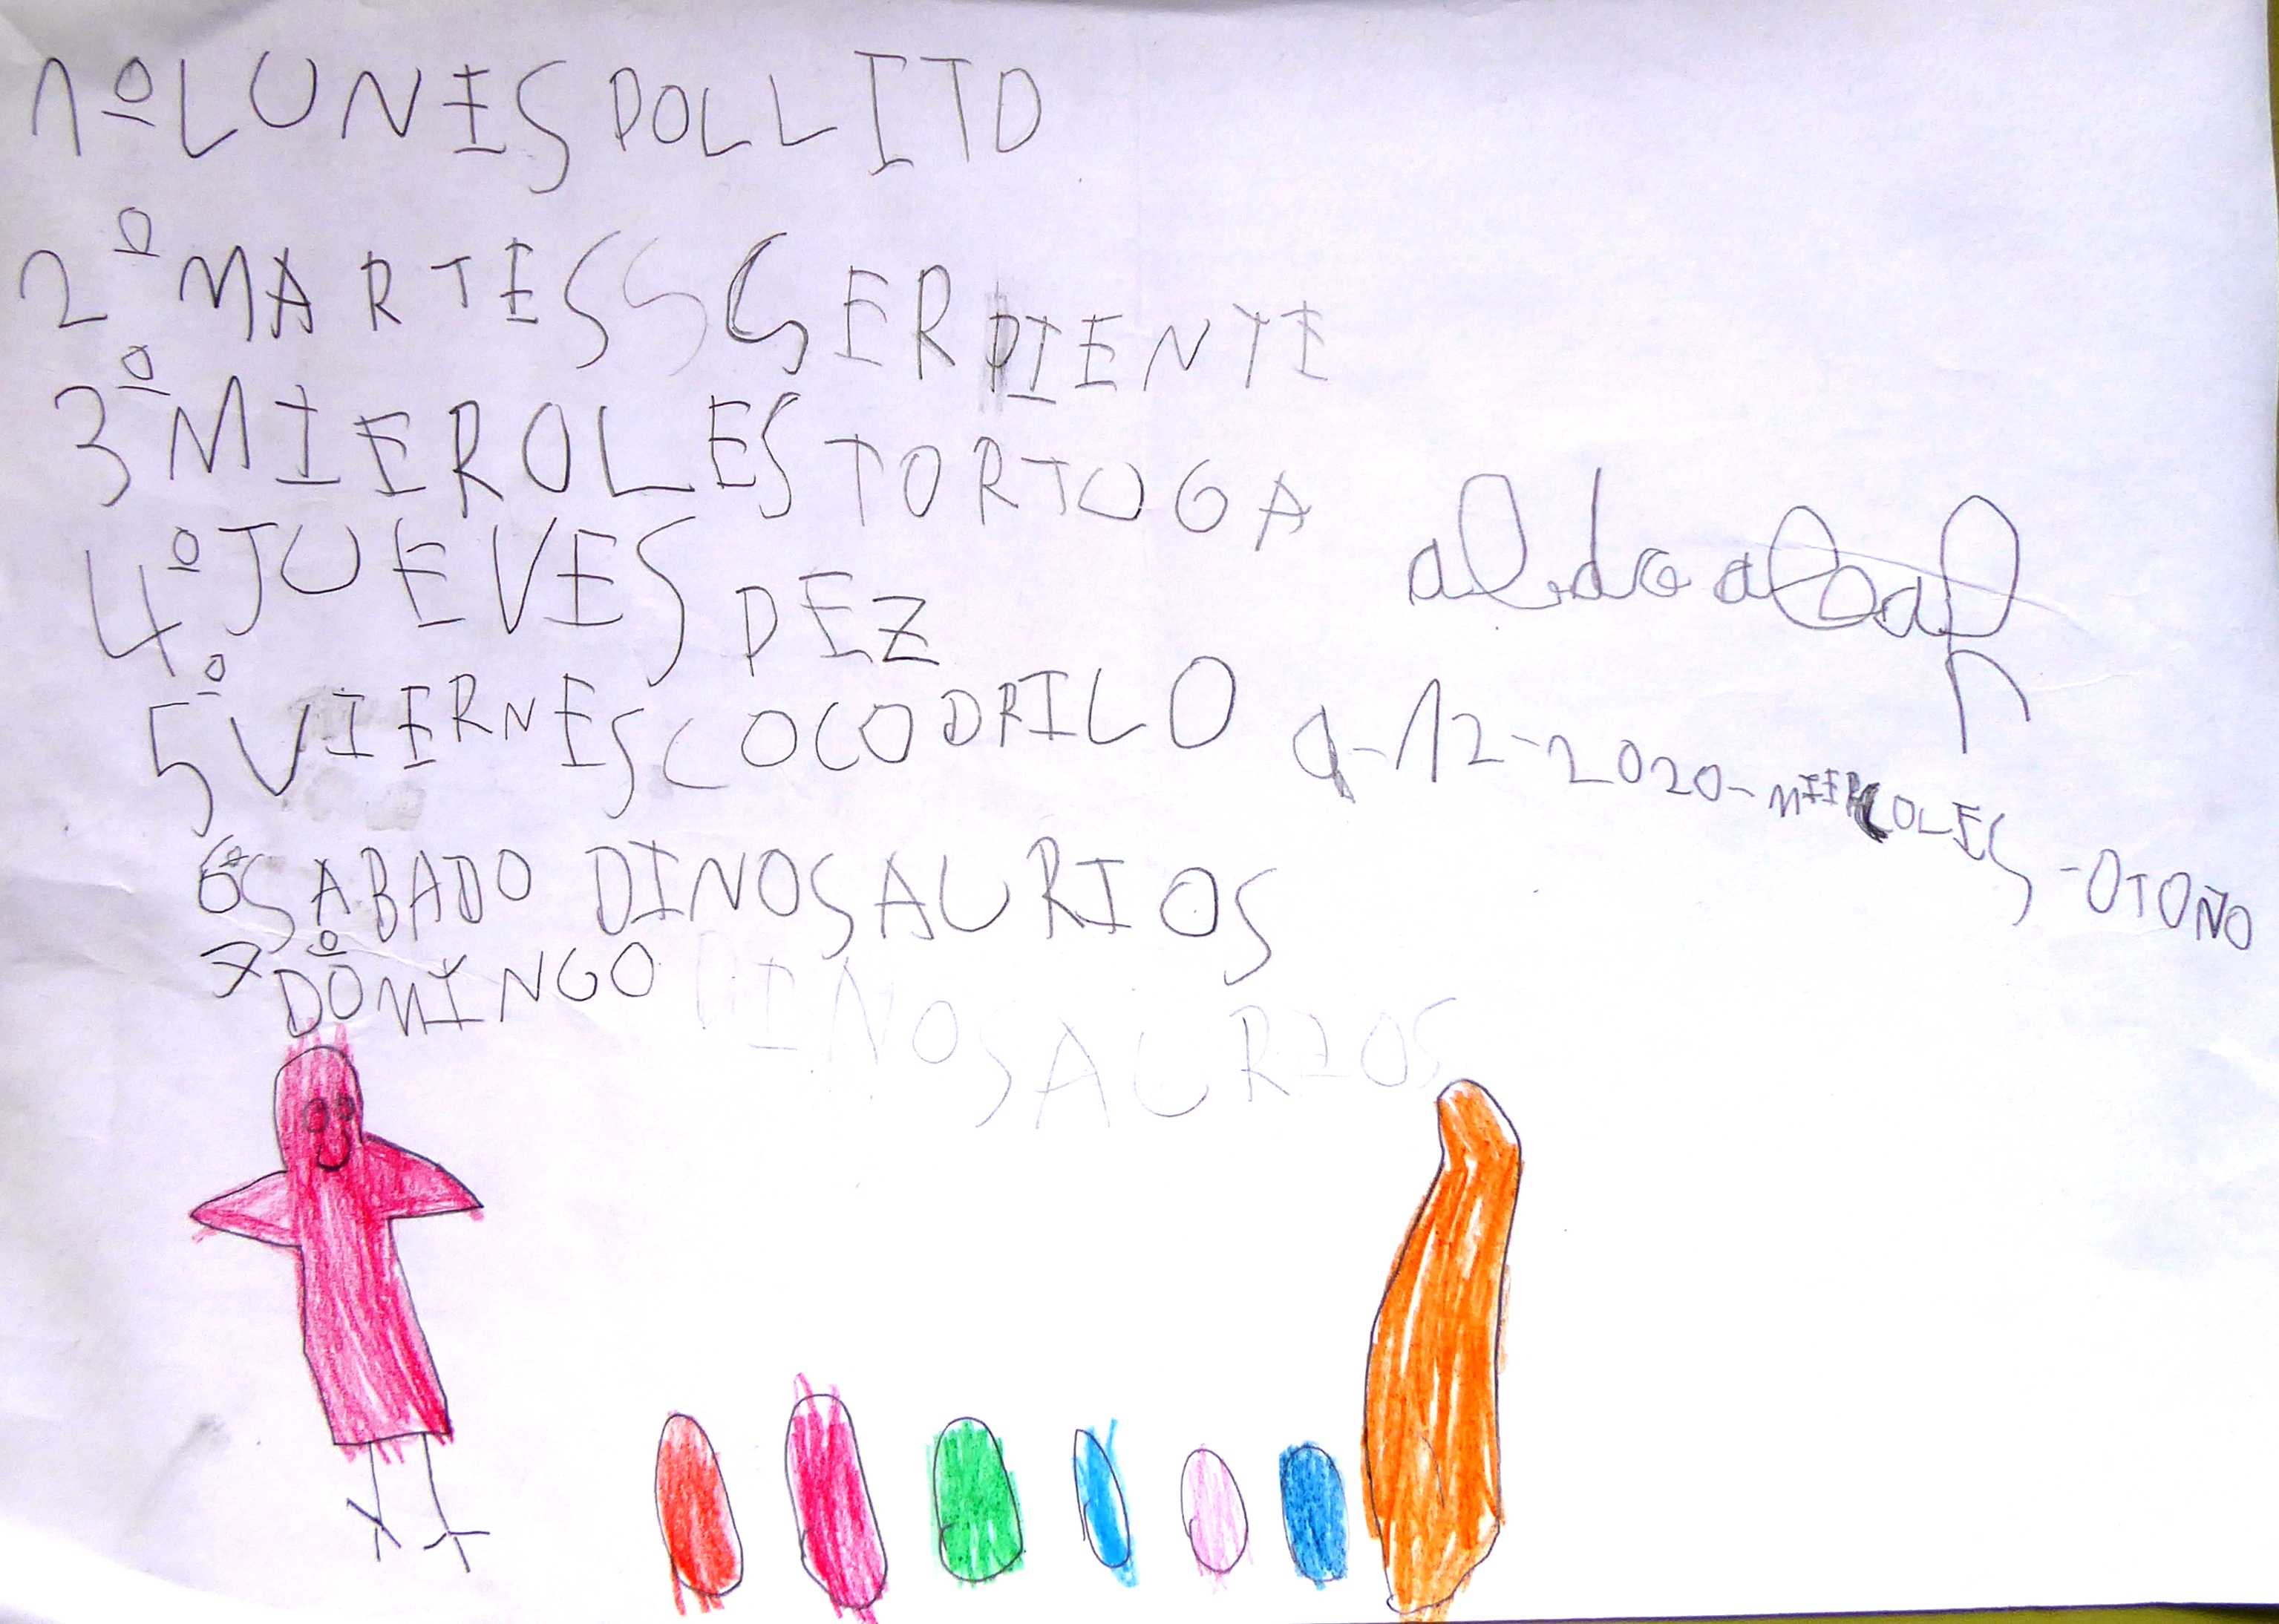 1º LUNES POLLITO
2º MARTES S SERPIENTE
3º MIEROLES TORTUGA
4º JUEVES PEZ
5º VIERNES COCODRILO
6º SABADO DINOSAURIOS
7º DOMINGO DINOSAURIOS
aldo
9-12-2020-MIERCOLES-OTOÑO